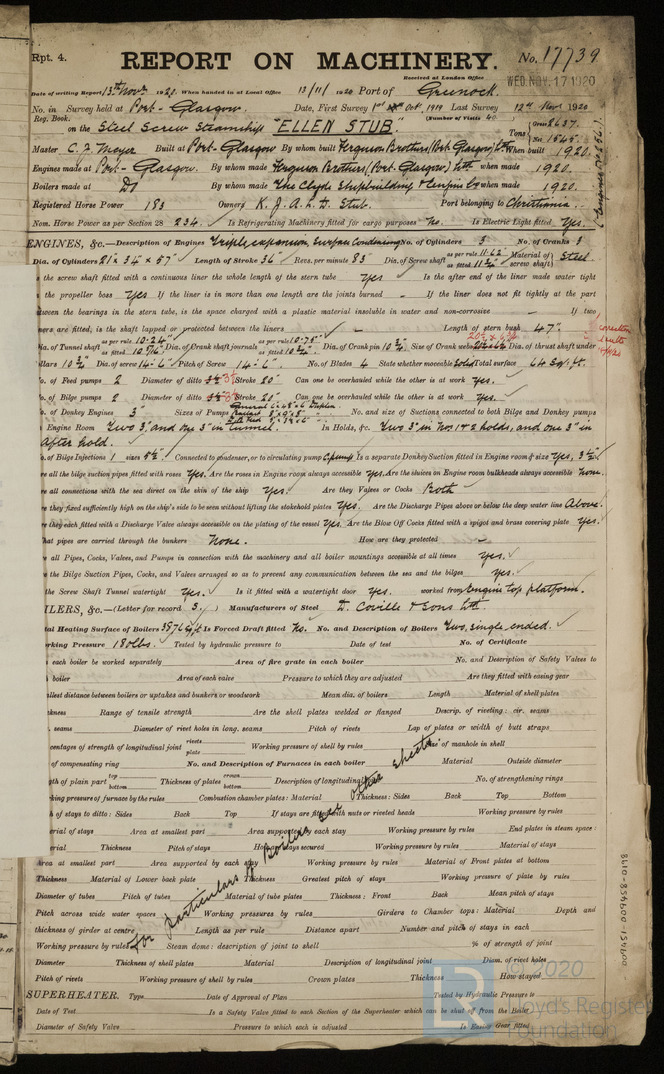 Rpt. 4.
REPORT ON MACHINERY. No. 17739
Received at London Office WED. NOV. 17 1920
Date of writing Report 13th Novr 1920. When handed in at Local Office 13/11/1920 Port of Greenock.
No. in Survey held at Port-Glasgow. Date, First Survey 1st Oct. 1919 Last Survey 12th Nov 1920
Reg. Book. (Number of Visits 40)
on the Steel Screw Steamship "ELLEN STUB." Tons Gross 2637. Net 1545.
Master C. F. Meyer Built at Port-Glasgow By whom built Ferguson Brothers (Port-Glasgow) Ltd When built 1920.
Engines made at Port-Glasgow. By whom made Ferguson Brothers (Port-Glasgow) Ltd when made 1920.
Boilers made at Do By whom made The Clyde Shipbuilding & Engin. Co when made 1920.
Registered Horse Power 183 Owners K. J. A. L. D. Stub. Port belonging to Christiania.
Nom. Horse Power as per Section 28 234. Is Refrigerating Machinery fitted for cargo purposes No. Is Electric Light fitted Yes.
ENGINES, &c.—Description of Engines Triple expansion, Surface Condensing No. of Cylinders 3 No. of Cranks 3
Dia. of Cylinders 21" 34" & 57" Length of Stroke 36" Revs. per minute 83 Dia. of Screw shaft as per rule 11.62 as fitted 11 3/4" Material of screw shaft Steel
is the screw shaft fitted with a continuous liner the whole length of the stern tube Yes Is the after end of the liner made water tight
the propeller boss Yes If the liner is in more than one length are the joints burned - If the liner does not fit tightly at the part
tween the bearings in the stern tube, is the space charged with a plastic material insoluble in water and non-corrosive - If two
ners are fitted, is the shaft lapped or protected between the liners - Length of stern bush 47".
ia. of Tunnel shaft as per rule 10.24" as fitted 10 7/16" Dia. of Crank shaft journals as per rule 10.75" as fitted 10 3/4" Dia. of Crank pin 10 3/4" Size of Crank webs Dia. of thrust shaft under
ollars 10 3/4" Dia. of screw 14'-6" Pitch of Screw 14'-6" No. of Blades 4 State whether moveable Solid Total surface 64 Sq. ft.
o. of Feed pumps 2 Diameter of ditto Stroke 20" Can one be overhauled while the other is at work Yes.
o. of Bilge pumps 2 Diameter of ditto Stroke 20" Can one be overhauled while the other is at work Yes.
o. of Donkey Engines 3 Sizes of Pumps No. and size of Suctions connected to both Bilge and Donkey pumps
Engine Room Two 3", and one 3" in tunnel. In Holds, &c. Two 3" in Nos. 1 & 2 holds, and one 3" in
After hold.
o. of Bilge Injections 1 sizes 5 1/2" Connected to condenser, or to circulating pump C. pump Is a separate Donkey Suction fitted in Engine room & size Yes, 3 1/2"
re all the bilge suction pipes fitted with roses Yes. Are the roses in Engine room always accessible Yes. Are the sluices on Engine room bulkheads always accessible None.
re all connections with the sea direct on the skin of the ship Yes. Are they Valves or Cocks Both
re they fixed sufficiently high on the ship's side to be seen without lifting the stokehold plates Yes. Are the Discharge Pipes above or below the deep water line Above.
re they each fitted with a Discharge Valve always accessible on the plating of the vessel Yes. Are the Blow Off Cocks fitted with a spigot and brass covering plate Yes.
hat pipes are carried through the bunkers None. How are they protected -
re all Pipes, Cocks, Valves, and Pumps in connection with the machinery and all boiler mountings accessible at all times Yes.
re the Bilge Suction Pipes, Cocks, and Valves arranged so as to prevent any communication between the sea and the bilges Yes.
the Screw Shaft Tunnel watertight Yes. Is it fitted with a watertight door Yes. worked from Engine top platform.
ILERS, &c.—(Letter for record S.) Manufacturers of Steel D. Colville & Sons Ltd.
tal Heating Surface of Boilers Is Forced Draft fitted No. No. and Description of Boilers Two, single ended.
rking Pressure 180 lbs. Tested by hydraulic pressure to Date of test No. of Certificate
each boiler be worked separately Area of fire grate in each boiler No. and Description of Safety Valves to
boiler Area of each valve Pressure to which they are adjusted Are they fitted with easing gear
allest distance between boilers or uptakes and bunkers or woodwork Mean dia. of boilers Length Material of shell plates
kness Range of tensile strength Are the shell plates welded or flanged Descrip. of riveting: cir. seams
. seams Diameter of rivet holes in long. seams Pitch of rivets Lap of plates or width of butt straps
centages of strength of longitudinal joint rivets plate Working pressure of shell by rules Size of manhole in shell
of compensating ring No. and Description of Furnaces in each boiler Material Outside diameter
gth of plain part top bottom Thickness of plates crown bottom Description of longitudinal No. of strengthening rings
king pressure of furnace by the rules Combustion chamber plates: Material Thickness: Sides Back Top Bottom
h of stays to ditto: Sides Back Top If stays are fitted with nuts or riveted heads Working pressure by rules
erial of stays Area at smallest part Area supported by each stay Working pressure by rules End plates in steam space:
erial Thickness Pitch of stays How are stays secured Working pressure by rules Material of stays
ea at smallest part Area supported by each stay Working pressure by rules Material of Front plates at bottom
Thickness Material of Lower back plate Thickness Greatest pitch of stays Working pressure of plate by rules
Diameter of tubes Pitch of tubes Material of tube plates Thickness: Front Back Mean pitch of stays
Pitch across wide water spaces Working pressures by rules Girders to Chamber tops: Material Depth and
thickness of girder at centre Length as per rule Distance apart Number and pitch of stays in each
Working pressure by rules Steam dome: description of joint to shell % of strength of joint
Diameter Thickness of shell plates Material Description of longitudinal joint Diam. of rivet holes
Pitch of rivets Working pressure of shell by rules Crown plates Thickness How stayed
For particulars of Boilers see other sheets.
SUPERHEATER. Type Date of Approval of Plan Tested by Hydraulic Pressure to
Date of Test Is a Safety Valve fitted to each Section of the Superheater which can be shut off from the Boiler
Diameter of Safety Valve Pressure to which each is adjusted Is Easing Gear fitted
2020
Lloyd's Register
Foundation